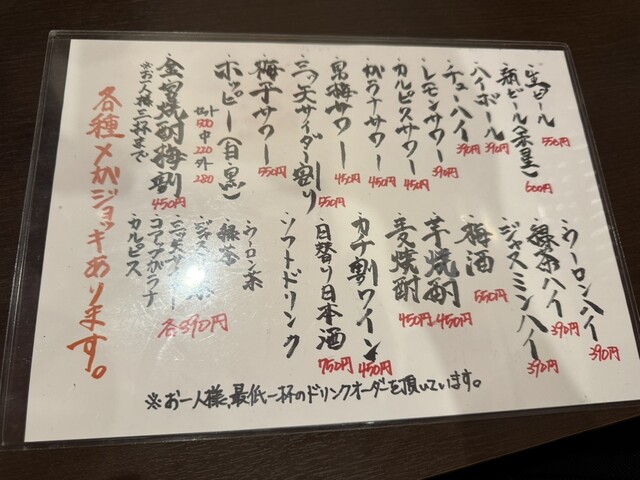 生ビール 550円
瓶ビール(赤星) 600円
ハイボール 390円
チューハイ 390円
レモンサワー 390円
カルピスサワー 450円
ガラナサワー 450円
男梅サワー 450円
三ツ矢サイダー割り 550円
梅干サワー 550円
ホッピー(白・黒)
セット 500
中 220
外 280
金宮焼酎梅割 450円
※お一人様三杯まで
ウーロンハイ 390円
緑茶ハイ 390円
ジャスミンハイ 390円
梅酒 550円
芋焼酎 450円
麦焼酎 450円
カチ割ワイン 450円
日替り日本酒 750円
ソフトドリンク
ウーロン茶
緑茶
三ツ矢サイダー
コアップガラナ
カルピス
各390円
各種メガジョッキあります。
※お一人様、最低一杯のドリンクオーダーを頂いています。